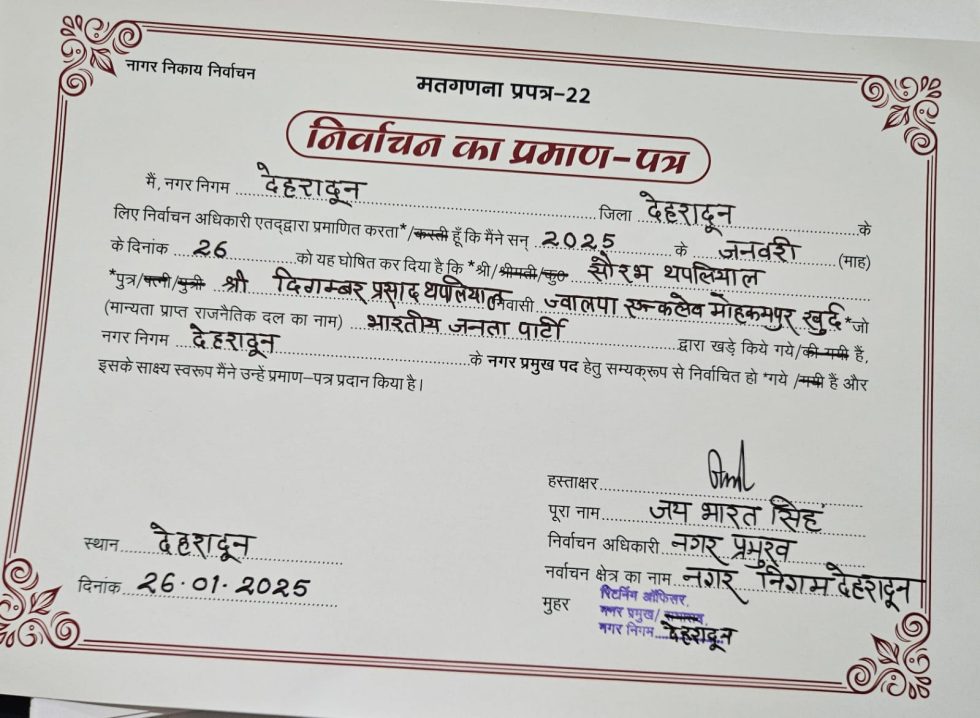 नागर निकाय निर्वाचन
मतगणना प्रपत्र-22
निर्वाचन का प्रमाण-पत्र
मैं, नगर निगम देहरादून जिला देहरादून के
लिए निर्वाचन अधिकारी एतद्द्वारा प्रमाणित करता*/करती हूँ कि मैंने सन् 2025 के जनवरी (माह)
के दिनांक 26 को यह घोषित कर दिया है कि *श्री/श्रीमती/कु० सौरभ थपलियाल
*पुत्र/पत्नी/पुत्री श्री दिगम्बर प्रसाद थपलियाल निवासी ज्वालपा एन्कलेव मोहकमपुर खुर्द *जो
(मान्यता प्राप्त राजनैतिक दल का नाम) भारतीय जनता पार्टी द्वारा खड़े किये गये/की गयी हैं,
नगर निगम देहरादून के नगर प्रमुख पद हेतु सम्यक्रूप से निर्वाचित हो *गये /गयी हैं और
इसके साक्ष्य स्वरूप मैंने उन्हें प्रमाण-पत्र प्रदान किया है।
हस्ताक्षर
पूरा नाम जय भारत सिंह
निर्वाचन अधिकारी नगर प्रमुख
निर्वाचन क्षेत्र का नाम नगर निगम देहरादून
मुहर
रिटर्निंग ऑफिसर,
नगर प्रमुख/
नगर निगम देहरादून
स्थान देहरादून
दिनांक 26.01.2025